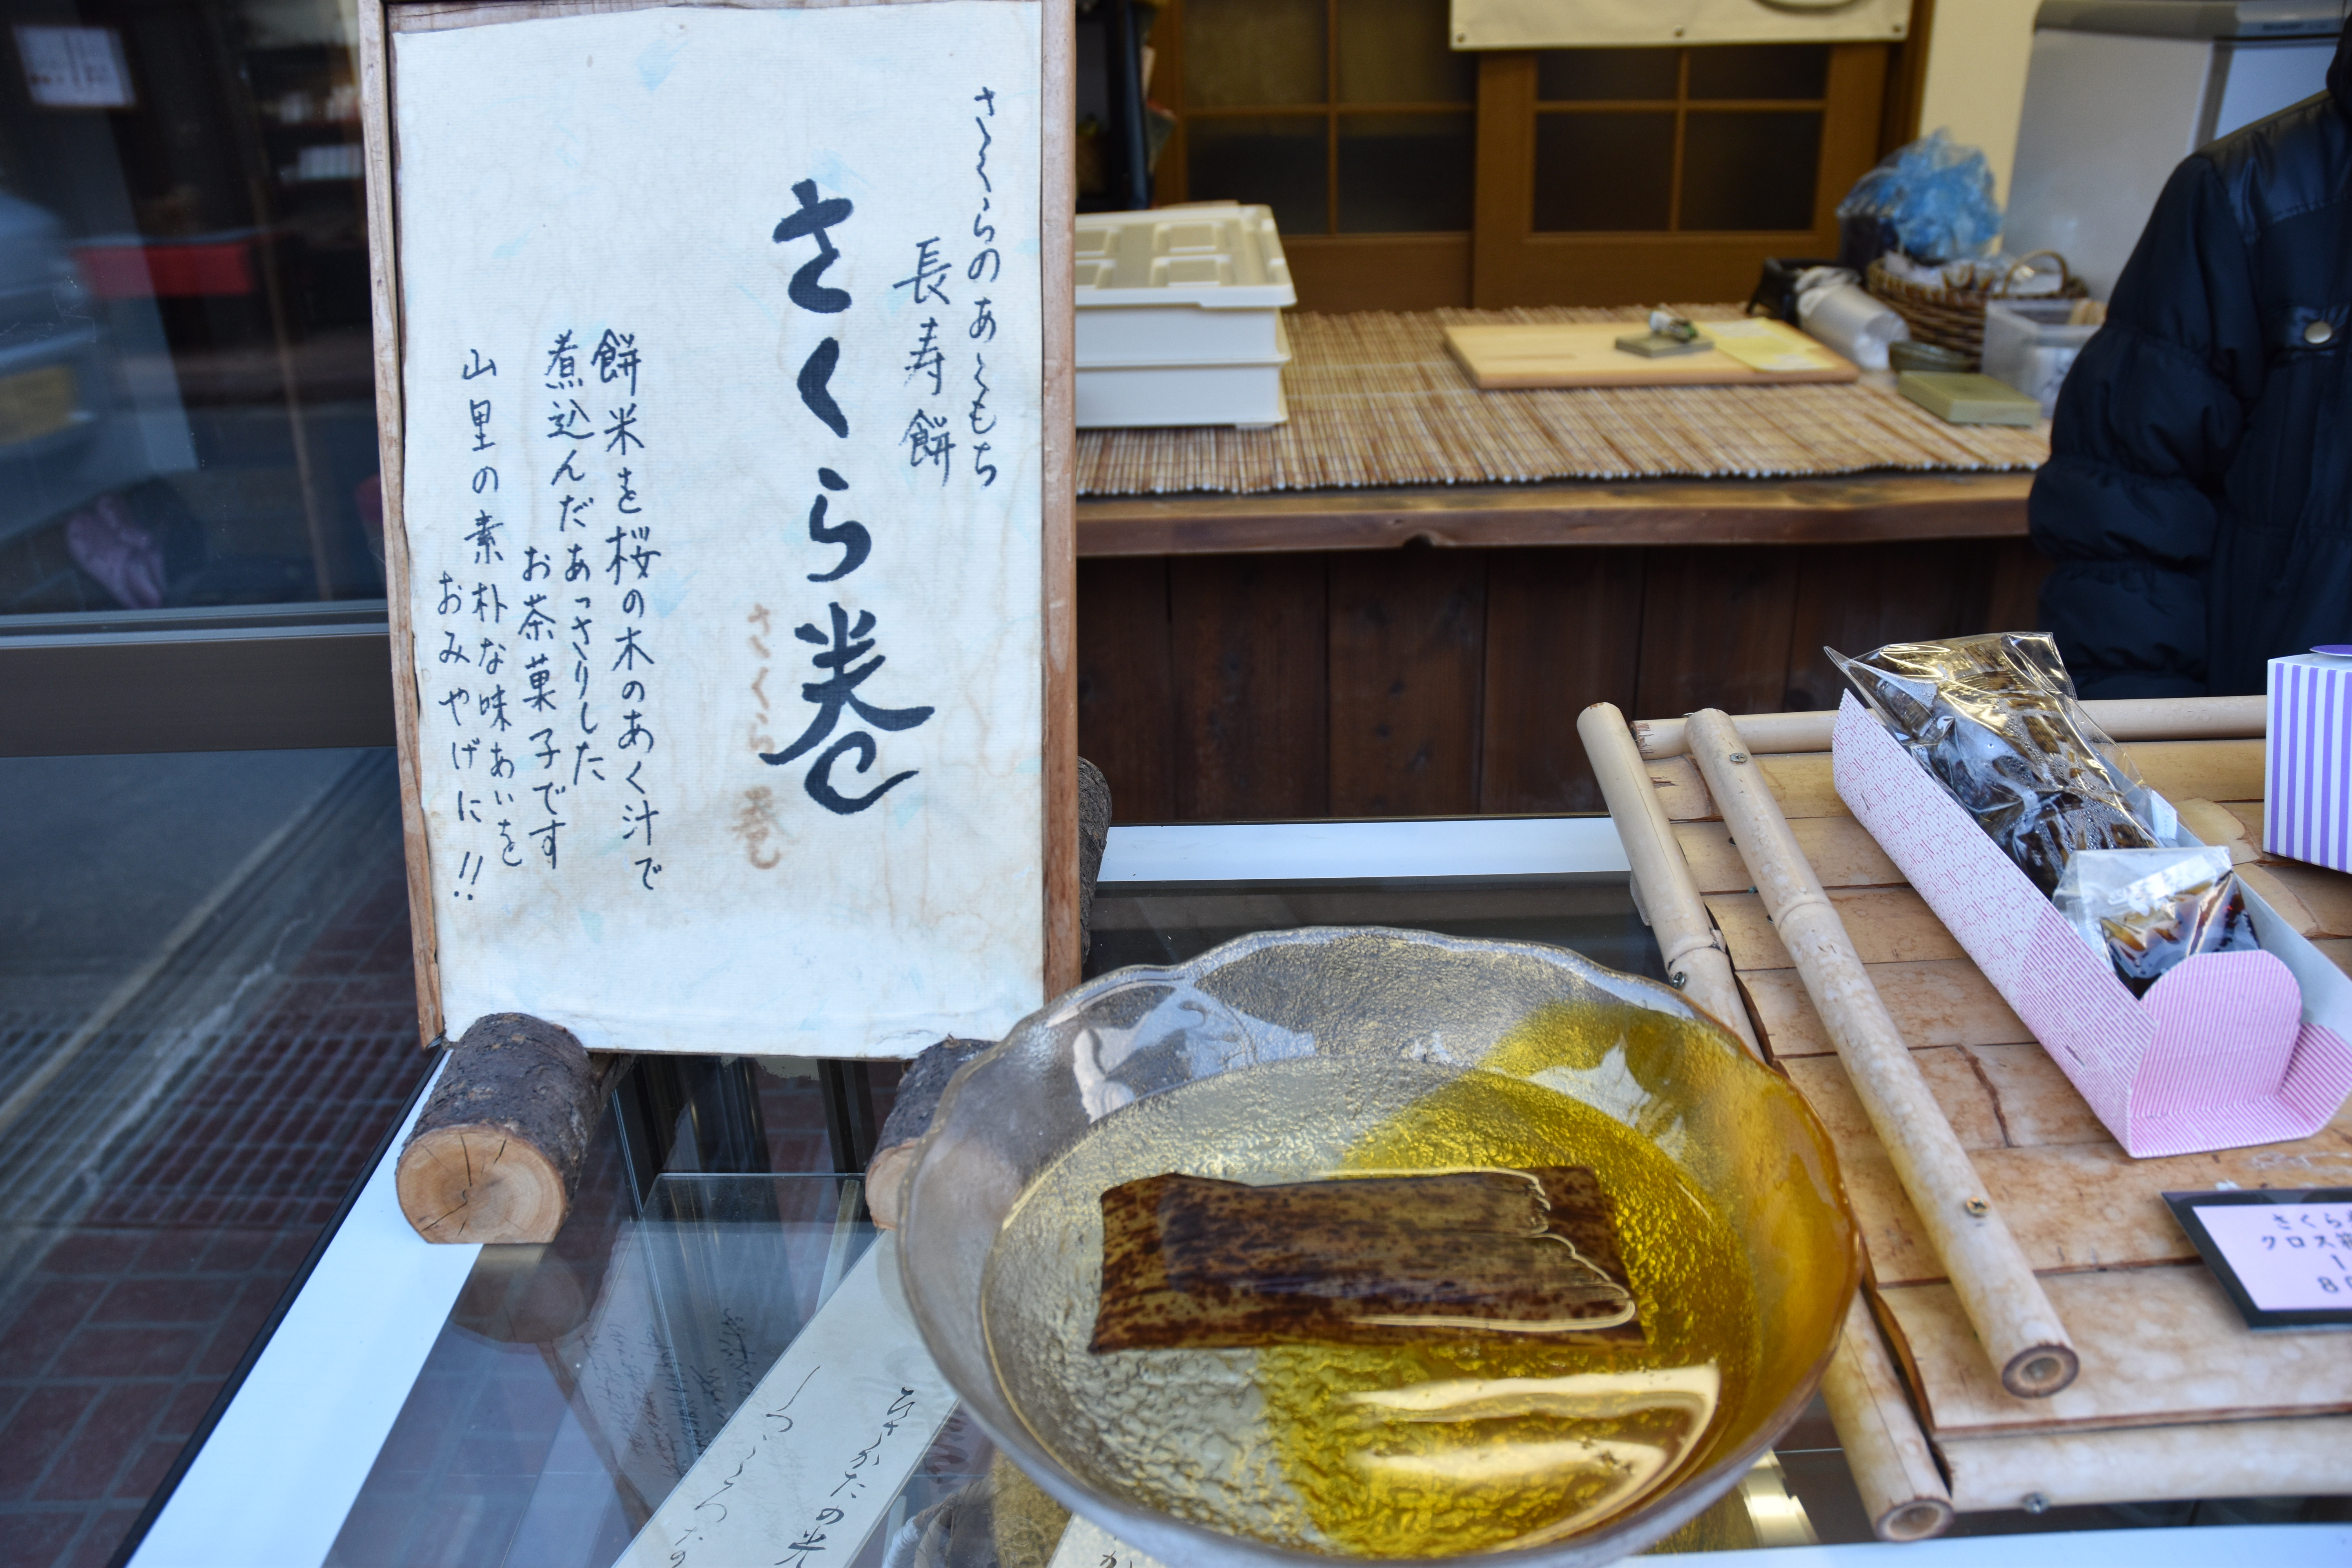 さくらのあくもち
長寿餅
さくら巻
さくら巻
餅米を桜の木のあく汁で
煮込んだあっさりした
お茶菓子です
山里の素朴な味あいを
おみやげに!!
さくら
クロス
ひさかたの光
しづこころなの
か